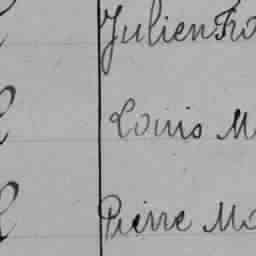 Julien Fra
Louis M
Pierre Mo